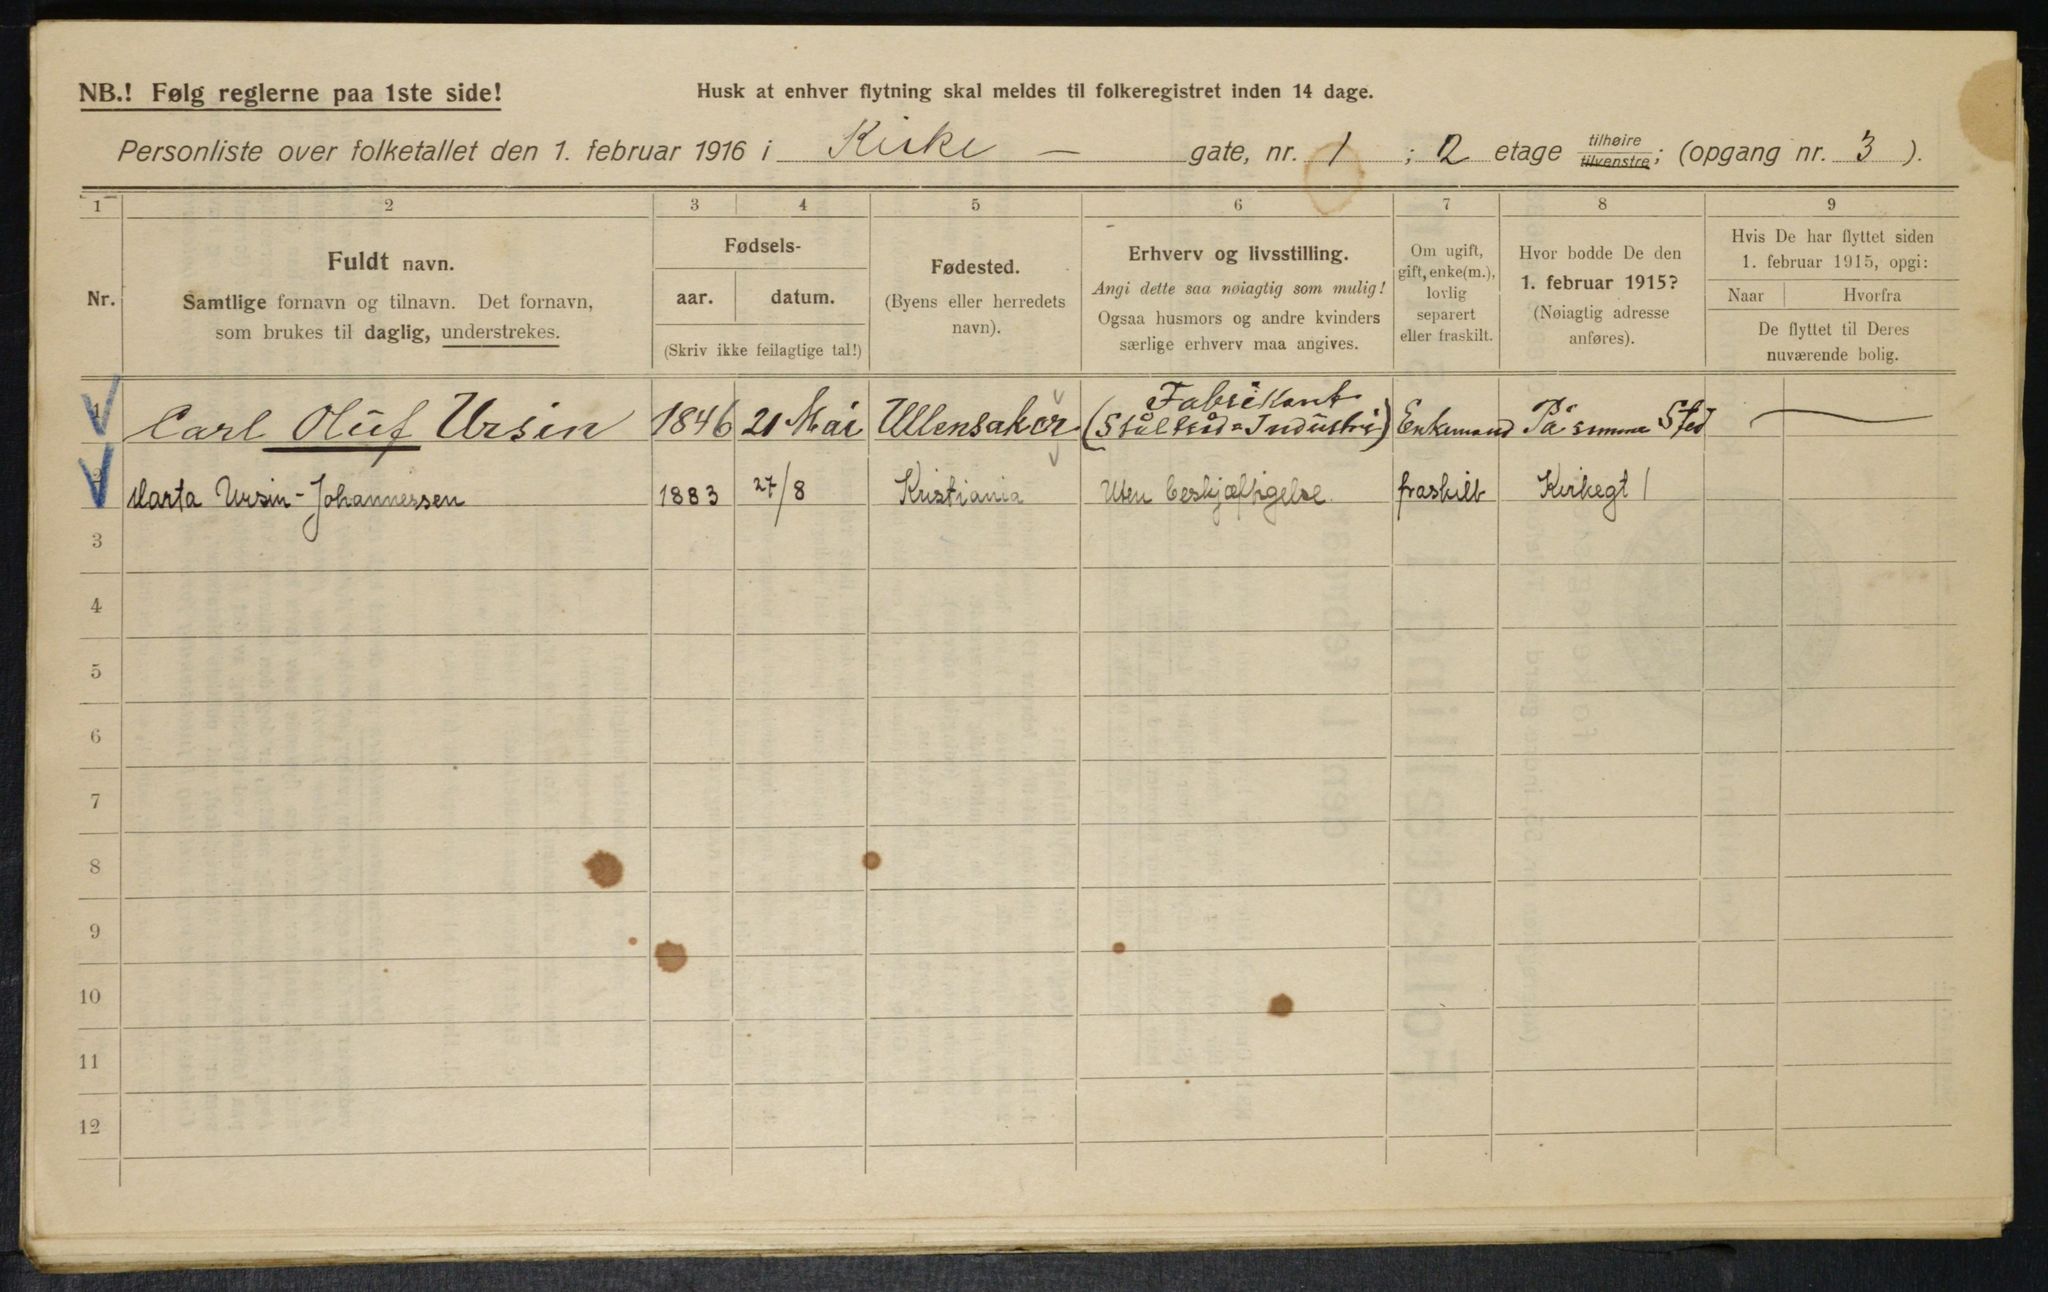 NB.! Følg reglerne paa 1ste side!
Husk at enhver flytning skal meldes til folkeregistret inden 14 dage.
Personliste over folketallet den 1. februar 1916 i Kirke — gate, nr. 1 ; 2 etage tilhøire tilvenstre; (opgang nr. 3 ).
1 2 3 4 5 6 7 8 9
Nr.
Fuldt navn.
Samtlige fornavn og tilnavn. Det fornavn,
som brukes til daglig, understrekes.
Fødsels-
aar. datum.
(Skriv ikke feilagtige tal!)
Fødested.
(Byens eller herredets
navn).
Erhverv og livsstilling.
Angi dette saa nøiagtig som mulig!
Ogsaa husmors og andre kvinders
særlige erhverv maa angives.
Om ugift,
gift, enke(m.),
lovlig
separert
eller fraskilt.
Hvor bodde De den
1. februar 1915?
(Nøiagtig adresse
anføres).
Hvis De har flyttet siden
1. februar 1915, opgi:
Naar Hvorfra
De flyttet til Deres
nuværende bolig.
1 Carl Oluf Ursin 1846 21 Mai Ullensaker Fabrikant (Ståltråd=Industri) Enkemand På samme Sted —
2 Marta Ursin-Johannessen 1883 27/8 Kristiania Uten beskjæftigelse. fraskilt Kirkegt 1
3
4
5
6
7
8
9
10
11
12